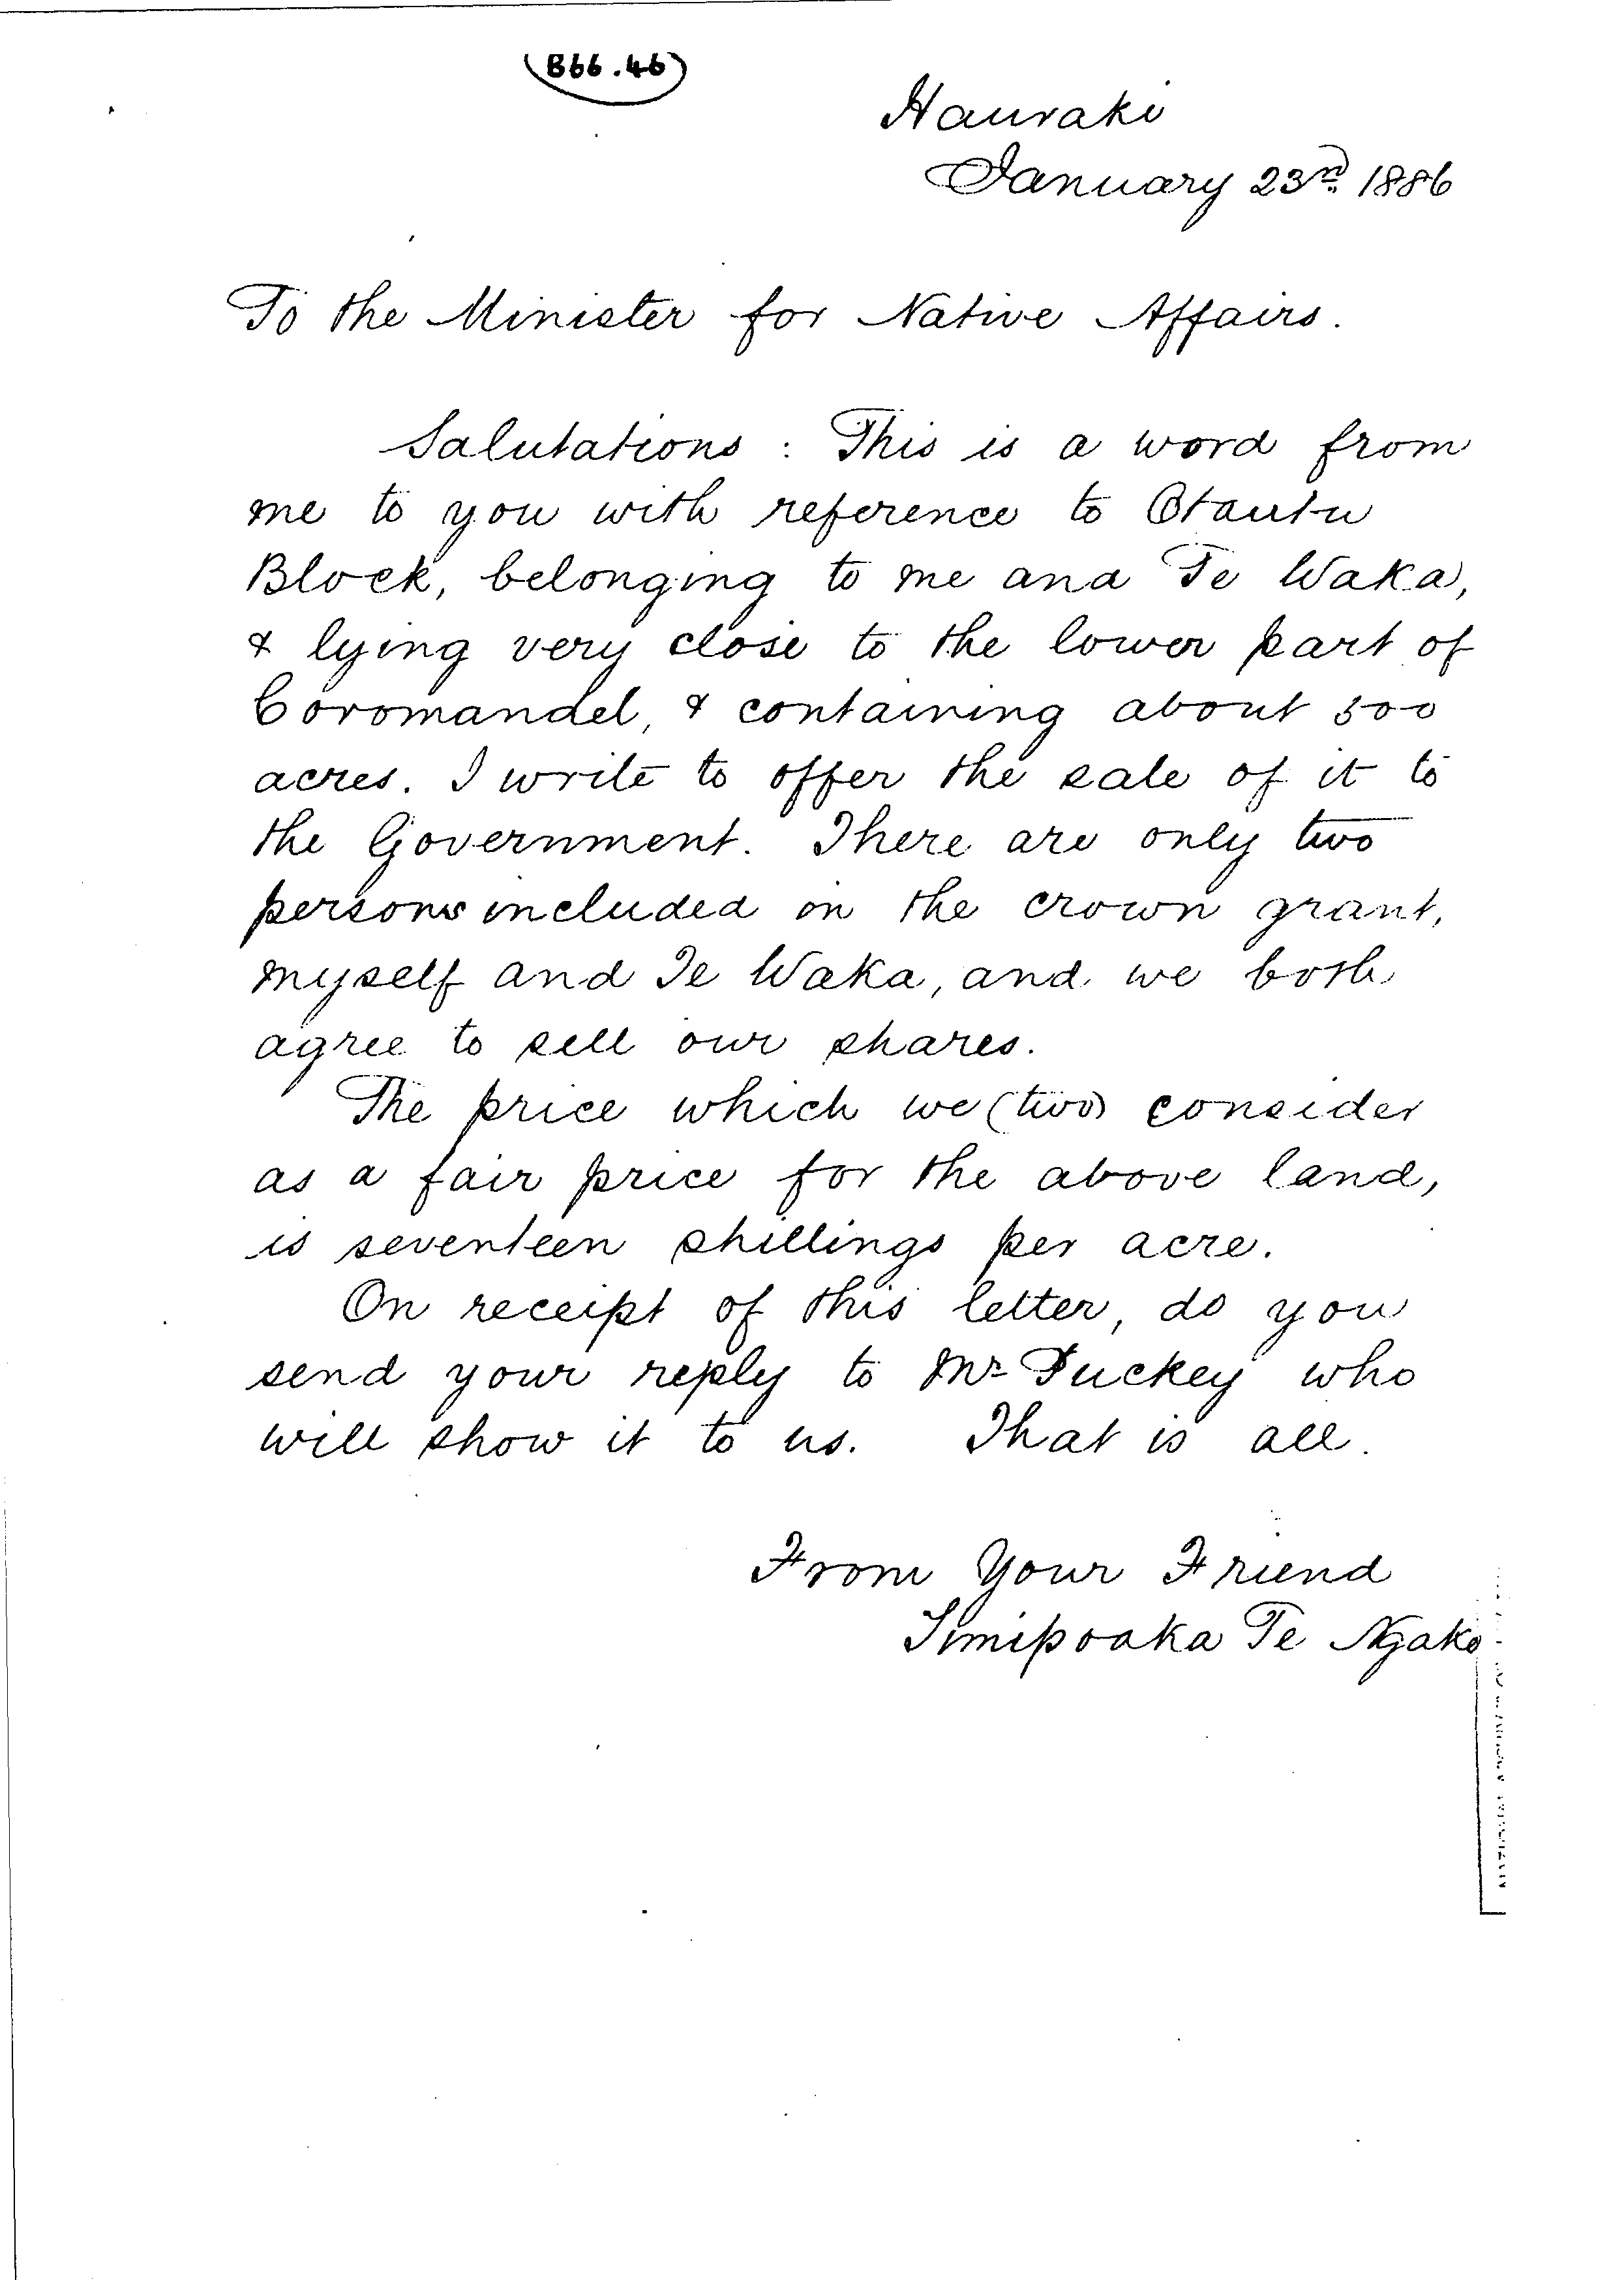 B66.46
Hauraki
January 23rd 1886
To the Minister for Native Affairs.
Salutations : This is a word from
me to you with reference to Otautu
Block, belonging to me and Te Waka,
& lying very close to the lower part of
Coromandel, & containing about 500
acres. I write to offer the sale of it to
the Government. There are only two
persons included in the crown grant,
myself and Te Waka, and we both
agree to sell our shares.
The price which we (two) consider
as a fair price for the above land,
is seventeen shillings per acre.
On receipt of this letter, do you
send your reply to Mr Puckey who
will show it to us. That is all.
From Your Friend
Timipoaka Te Ngako